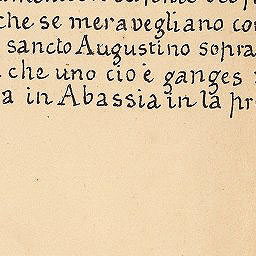 che se meravegliano co
sancto Augustino sopra
che uno cio è ganges
a in Abassia in la pr